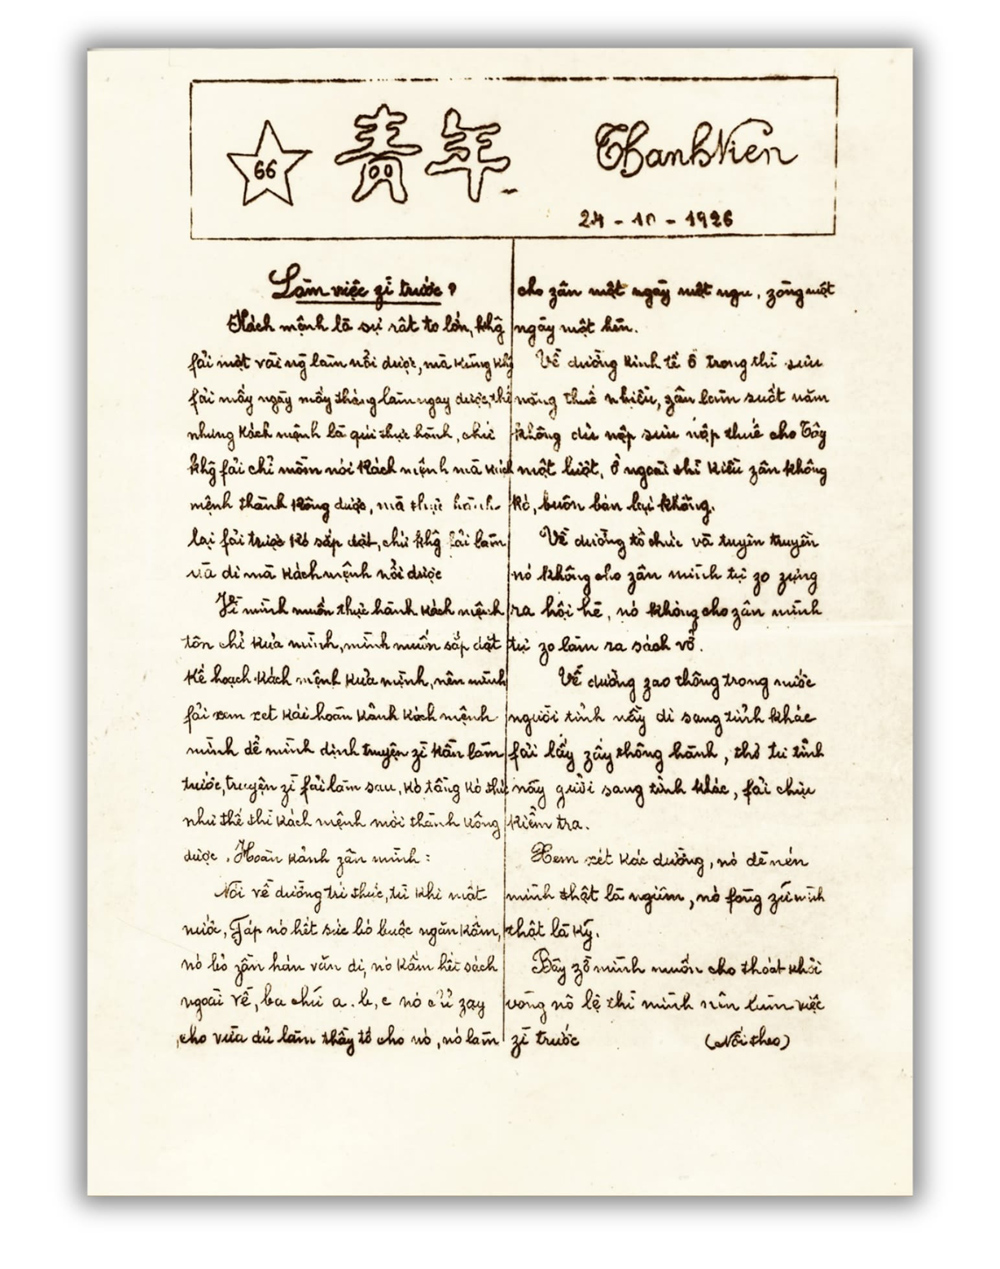 66
青年
Thanh Niên
24 - 10 - 1926
Làm việc zì trước?
Kách mệnh là sự rất to lớn, khg
fải một vài ng làm nổi được, mà kũng khg
fải mấy ngày mấy tháng làm ngay được, thế
nhưng kách mệnh là quí thực hành, chứ
khg fải chỉ mồm nói kách mệnh mà kách
mệnh thành kông được, mà thực hành
lại fải trước kó sắp đặt, chứ khg fải làm
và đi mà kách mệnh nổi được
Vì mình muốn thực hành kách mệnh
tôn chỉ kủa mình, mình muốn sắp đặt
kế hoạch kách mệnh kủa mình, nên mình
fải xem xét kái hoàn kảnh kách mệnh
mình để mình định truyện zì kần làm
trước, truyện zì fải làm sau, kó tầng kó thứ
như thế thì kách mệnh mới thành kông
được. Hoàn kảnh zân mình:
Nói về đường trí thức, từ khi mất
nước, Fáp nó hết sức bó buộc ngăn kấm,
nó bỏ zân hán văn đi, nó kấm hết sách
ngoài về, ba chữ a.b,c nó chỉ zạy
cho vừa đủ làm thầy tớ cho nó, nó làm
cho zân một ngày một ngu, zòng một
ngày một hèn.
Về đường kinh tế ở trong thì sưu
nặng thuế nhiều, zân làm suốt năm
không đủ nộp sưu nộp thuế cho Tây
một lượt, ở ngoài thì kiều zân không
kó, buôn bán lại không.
Về đường tổ chức và tuyên truyền
nó không cho zân mình tự zo zựng
ra hội hè, nó không cho zân mình
tự zo làm ra sách vở.
Về đường zao thông trong nước
người tỉnh nầy đi sang tỉnh khác
fải lấy zấy thông hành, thơ từ tỉnh
nầy gưởi sang tỉnh khác, fải chịu
kiểm tra.
Xem xét kác đường, nó đè nén
mình thật là ngiêm, nó fòng zữ mình
thật là kỹ.
Bây zờ mình muốn cho thoát khỏi
vòng nô lệ thì mình nên làm việc
zì trước
(Nối theo)